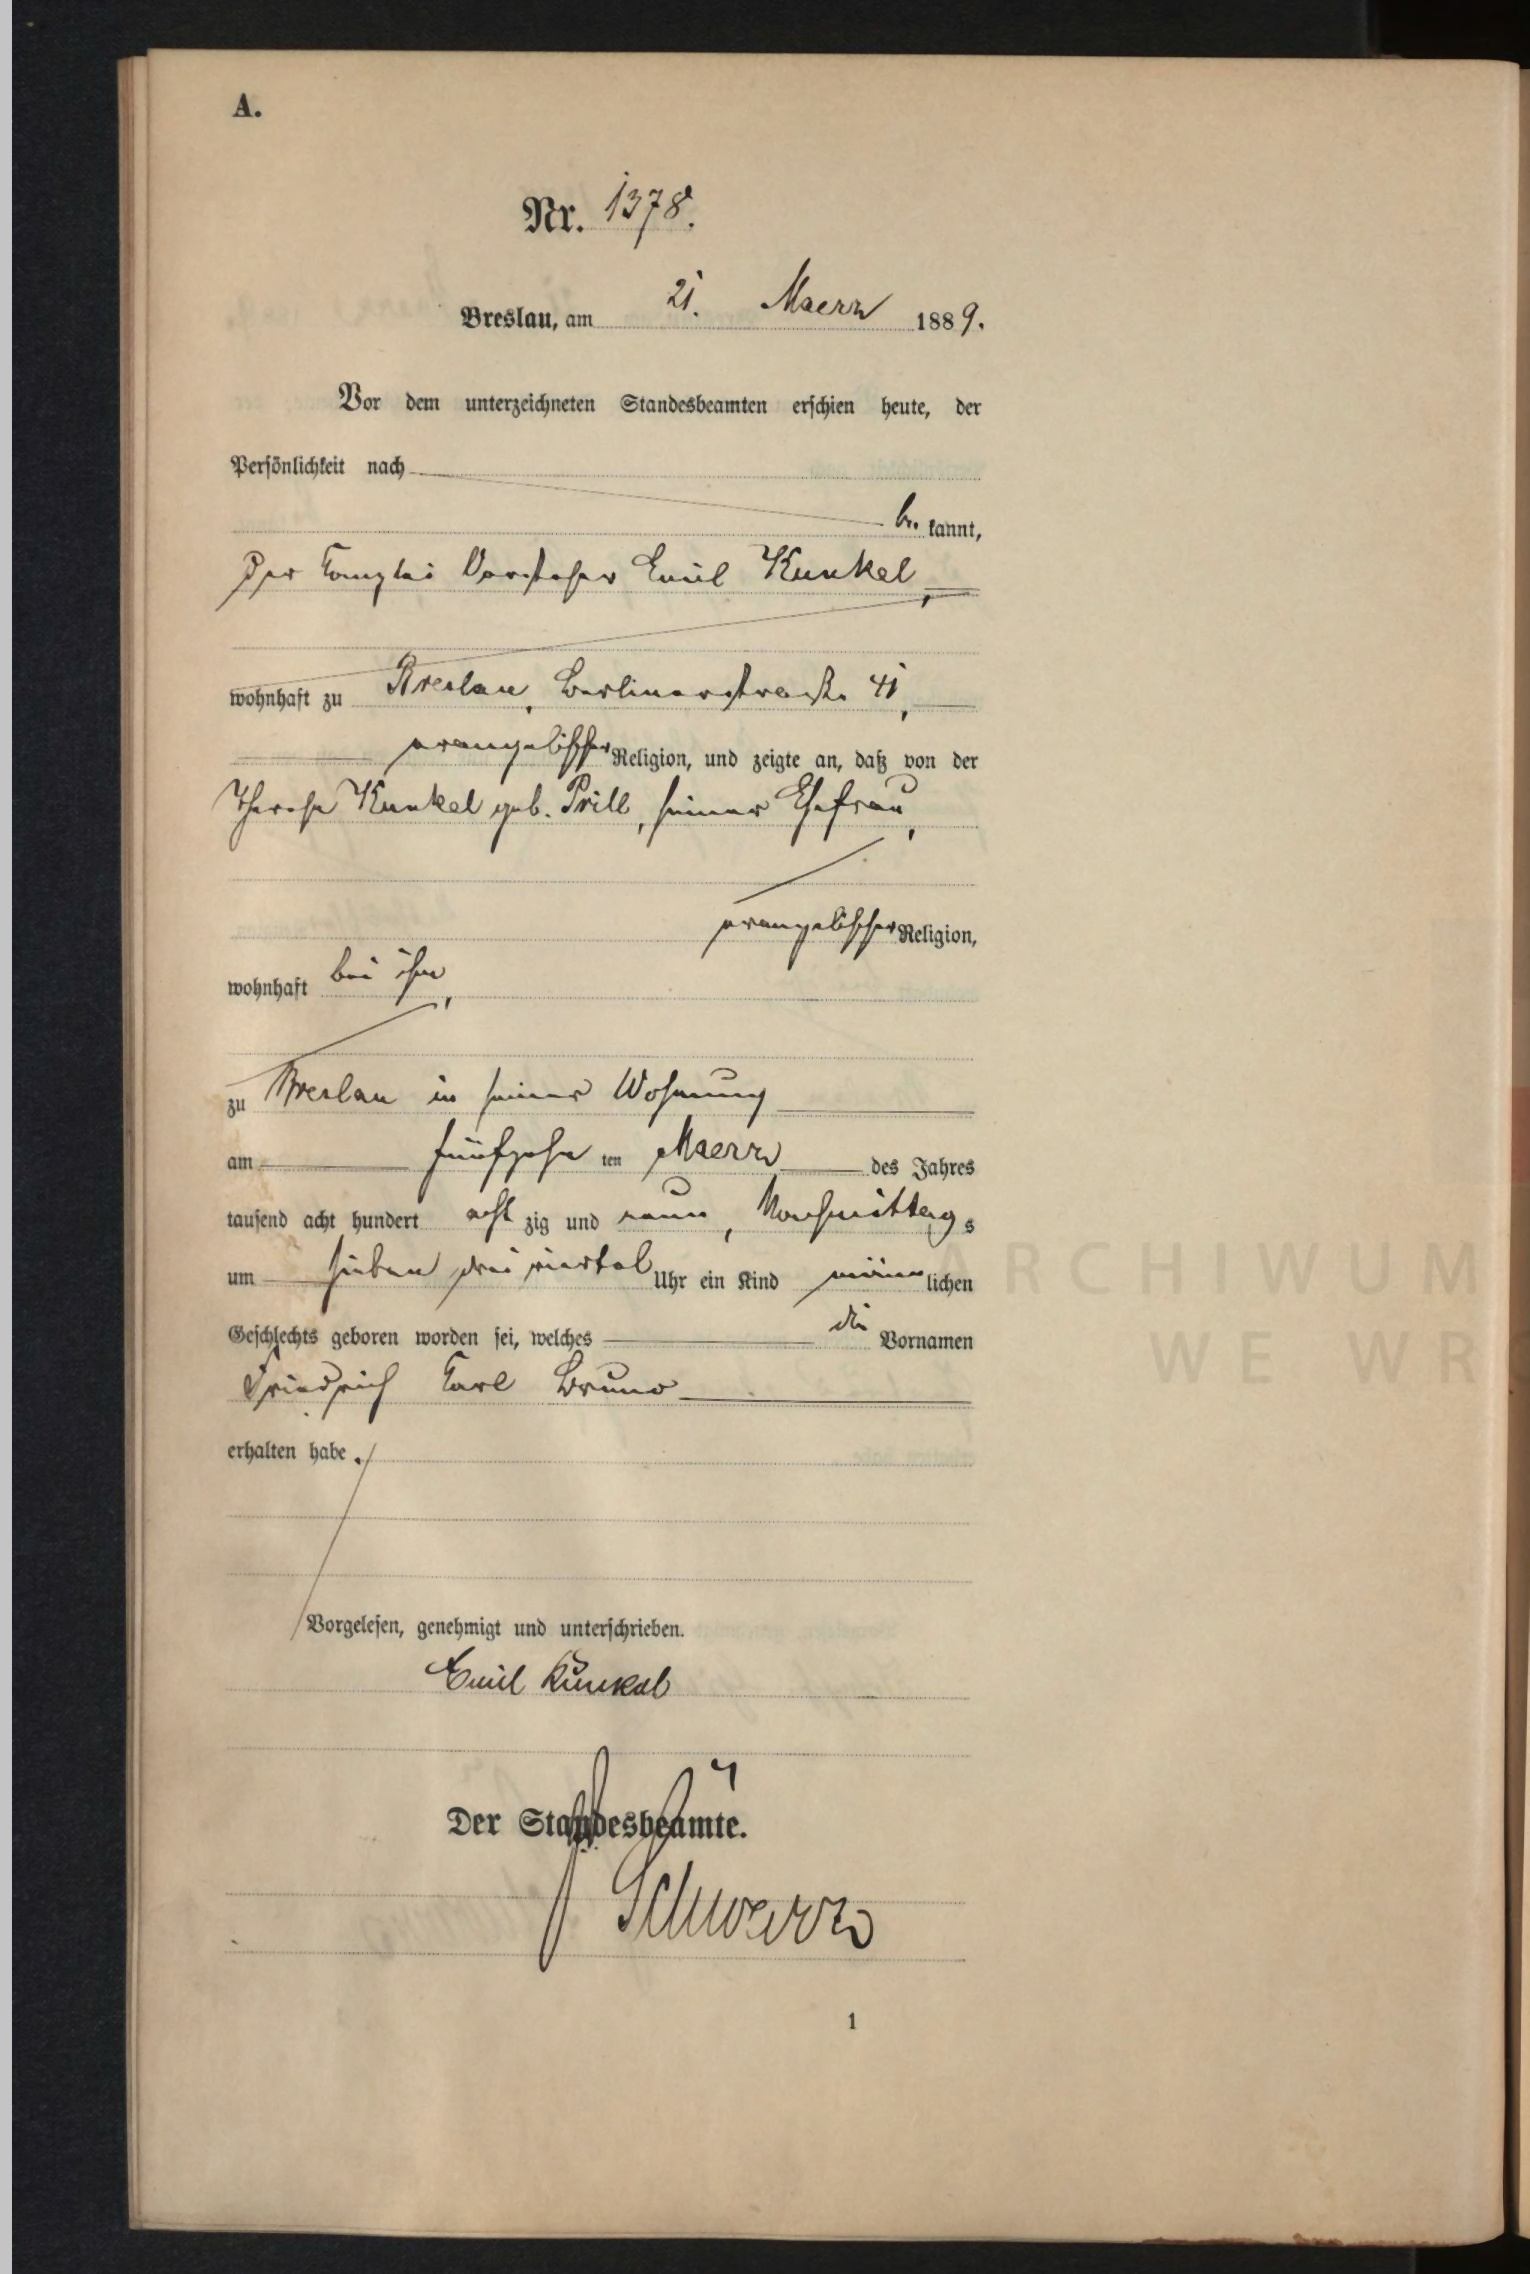 A.
Nr. 1378.
Breslau, am 21. Maerz 1889.
Vor dem unterzeichneten Standesbeamten erschien heute, der
Persönlichkeit nach
be kannt,
der Canzlei Vorsteher Emil Kunkel,
wohnhaft zu Breslau, Berlinerstraße 41,
evangelischer Religion, und zeigte an, daß von der
Therese Kunkel geb. Prill, seiner Ehefrau,
evangelischer Religion,
wohnhaft bei ihm,
zu Breslau in seiner Wohnung
am fünfzehn ten Maerz des Jahres
tausend acht hundert acht zig und neun, Nachmittags
um sieben drei viertel Uhr ein Kind männ lichen
Geschlechts geboren worden sei, welches die Vornamen
Friedrich Carl Bruno
erhalten habe.
Vorgelesen, genehmigt und unterschrieben.
Emil Kunkel
Der Standesbeamte.
Schwarz
1
ARCHIWUM
WE WRO